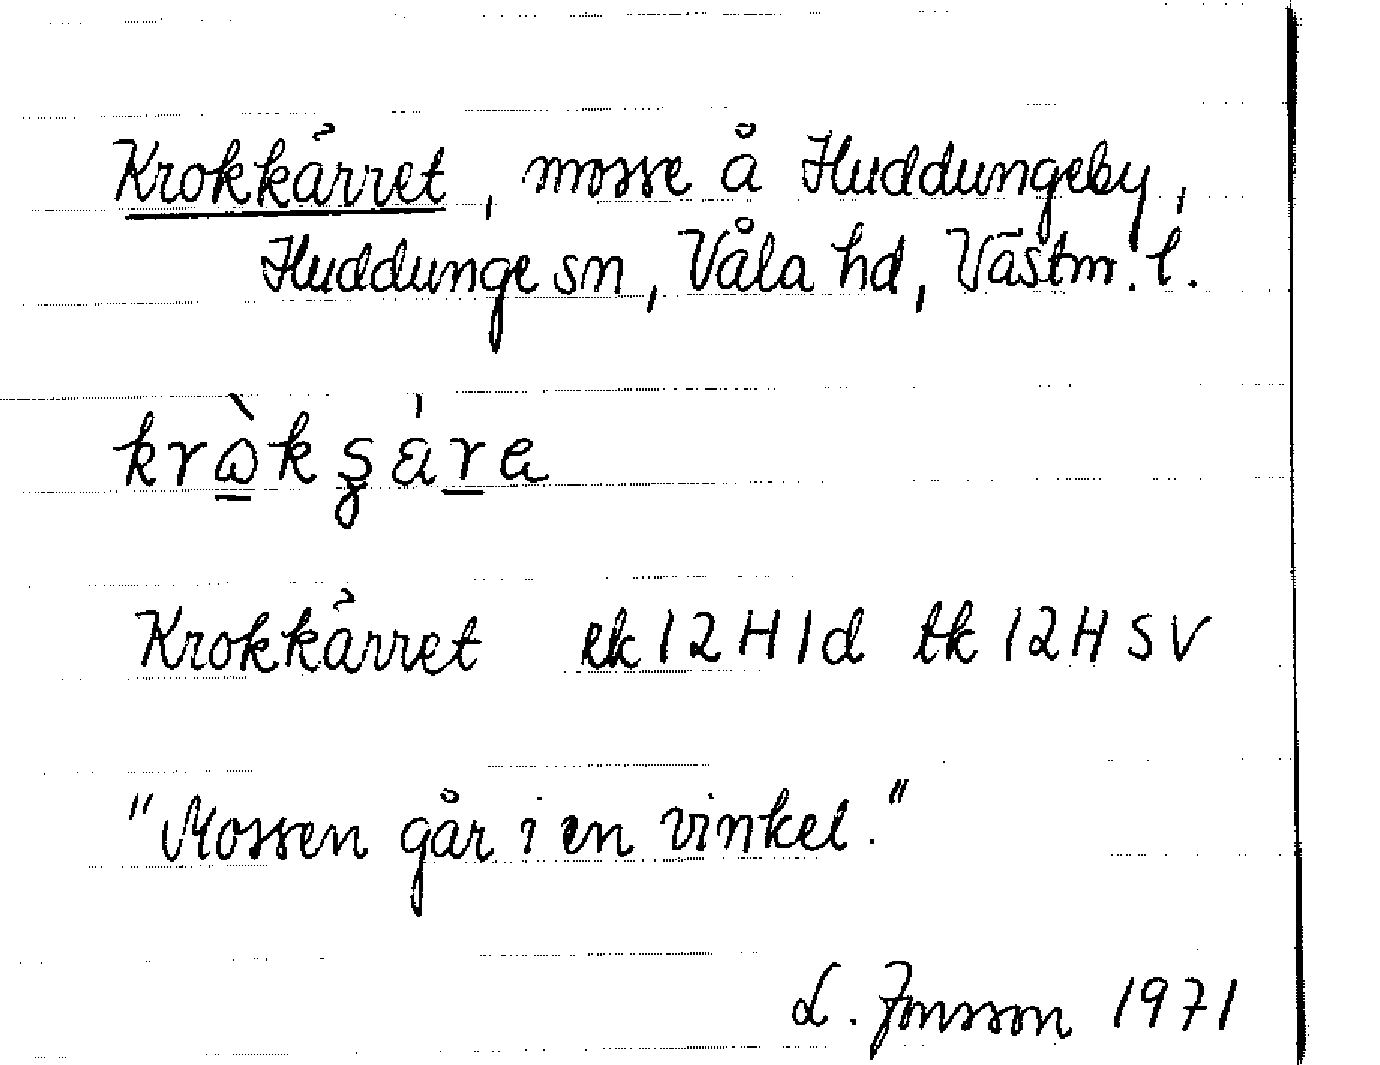 Krokkärret, mosse å Huddungeby,
Huddunge sn, Våla hd, Västm. l.
Krokkärret ek 12H1d tk 12H SV
"Mossen går i en vinkel."
L. Jonsson 1971